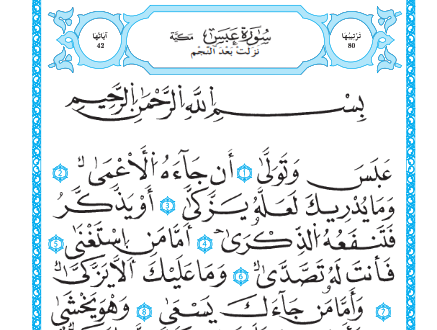 ترتيبها
80
سورة عبس مكية
نزلت بعد النجم
آياتها
42
بسم الله الرحمن الرحيم
عَبَسَ وَتَوَلَّىٰ ١ أَن جَآءَهُ ٱلْأَعْمَىٰ ٢
وَمَا يُدْرِيكَ لَعَلَّهُۥ يَزَّكَّىٰ ٣ أَوْ يَذَّكَّرُ
فَتَنفَعَهُ ٱلذِّكْرَىٰ ٤ أَمَّا مَنِ ٱسْتَغْنَىٰ ٥
فَأَنتَ لَهُۥ تَصَدَّىٰ ٦ وَمَا عَلَيْكَ أَلَّا يَزَّكَّىٰ
٧ وَأَمَّا مَن جَآءَكَ يَسْعَىٰ ٨ وَهُوَ يَخْشَىٰ